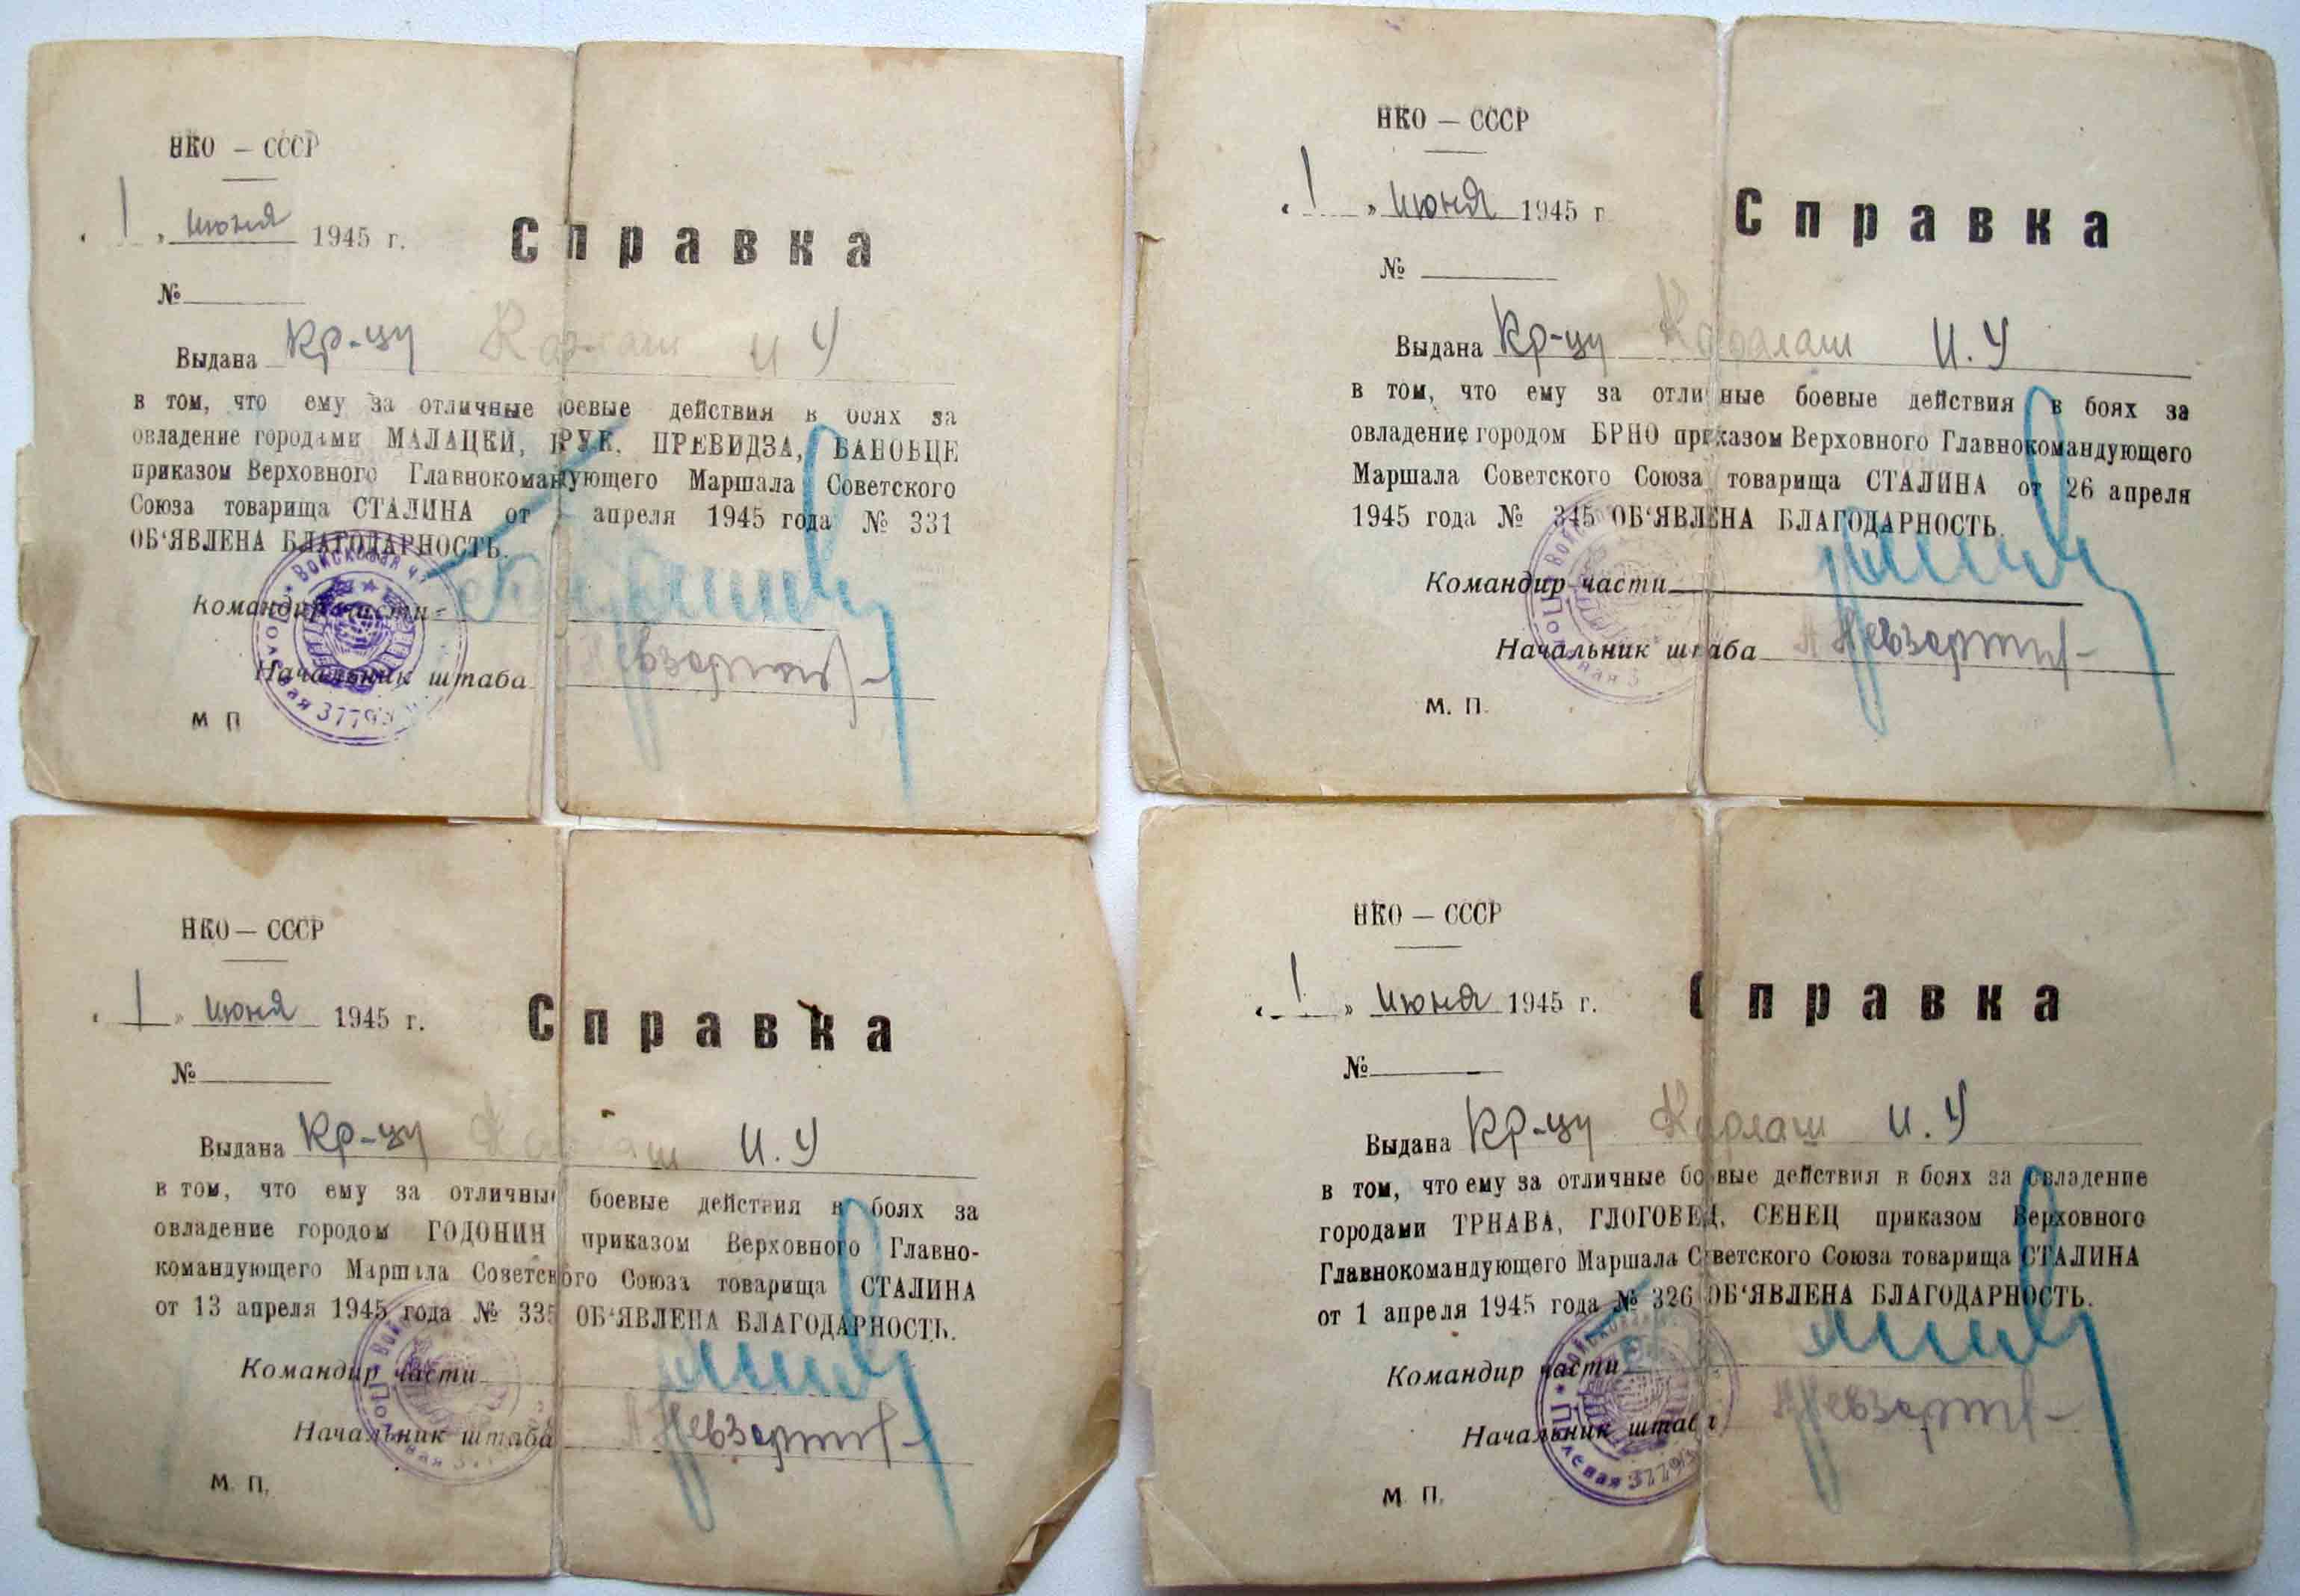 НКО — СССР
« 1 » июня 1945 г.
Справка
№
Выдана Кр-цу И У
в том, что ему за отличные боевые действия в боях за
овладение городами МАЛАЦКИ, БРУК, ПРЕВИДЗА, БАНОВЦЕ
приказом Верховного Главнокомандующего Маршала Советского
Союза товарища СТАЛИНА от апреля 1945 года № 331
ОБ‘ЯВЛЕНА БЛАГОДАРНОСТЬ.
Командир части
Начальник штаба
М П
Войсковая ч
Полевая 37793
НКО — СССР
« 1 » июня 1945 г
Справка
№
Выдана Кр-цу И. У
в том, что ему за отличные боевые действия в боях за
овладение городом БРНО приказом Верховного Главнокомандующего
Маршала Советского Союза товарища СТАЛИНА от 26 апреля
1945 года № 345 ОБ‘ЯВЛЕНА БЛАГОДАРНОСТЬ.
Командир части
Начальник штаба
М. П.
НКО — СССР
« 1 » июня 1945 г.
Справка
№
Выдана Кр-цу И. У
в том, что ему за отличные боевые действия в боях за
овладение городом ГОДОНИН приказом Верховного Главно-
командующего Маршала Советского Союза товарища СТАЛИНА
от 13 апреля 1945 года № 335 ОБ‘ЯВЛЕНА БЛАГОДАРНОСТЬ.
Командир части
Начальник штаба
М П.
НКО — СССР
« 1 » июня 1945 г.
Справка
№
Выдана Кр-цу Карлаш И. У
в том, что ему за отличные боевые действия в боях за овладение
городами ТРНАВА, ГЛОГОВЕЦ, СЕНЕЦ приказом Верховного
Главнокомандующего Маршала Советского Союза товарища СТАЛИНА
от 1 апреля 1945 года № 326 ОБ‘ЯВЛЕНА БЛАГОДАРНОСТЬ.
Командир части
Начальник штаба
М П.
Полевая 37793